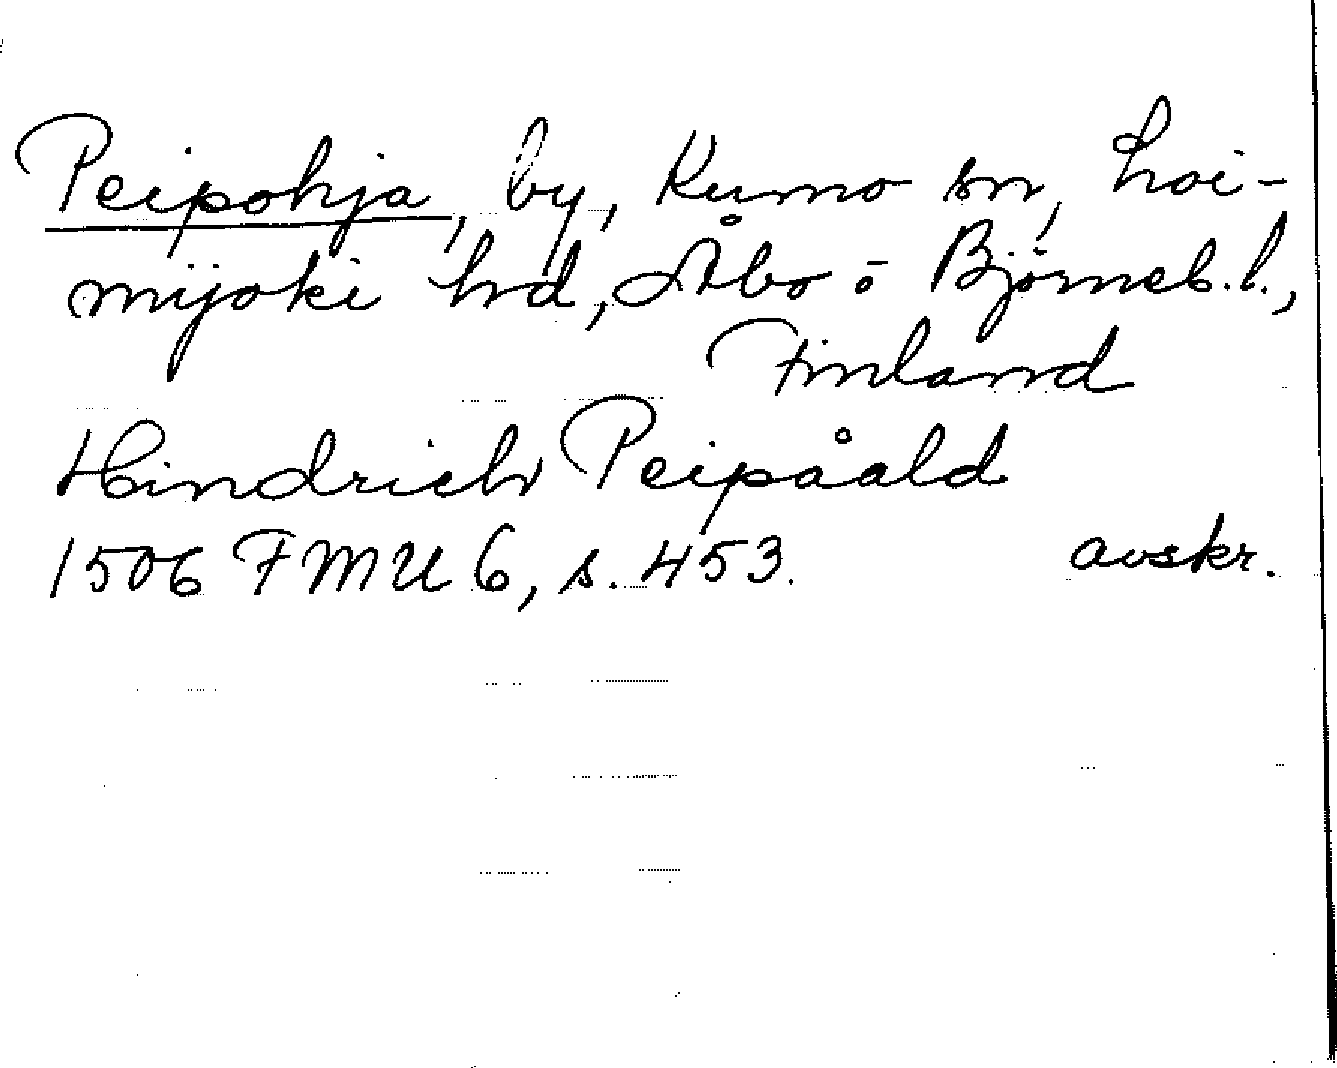 Peipohja, by, Kumo sn, Loi-
mijoki hd, Åbo o Björneb. l.,
Finland
Hindrich Peipåald
1506 FMU 6, s. 453. avskr.